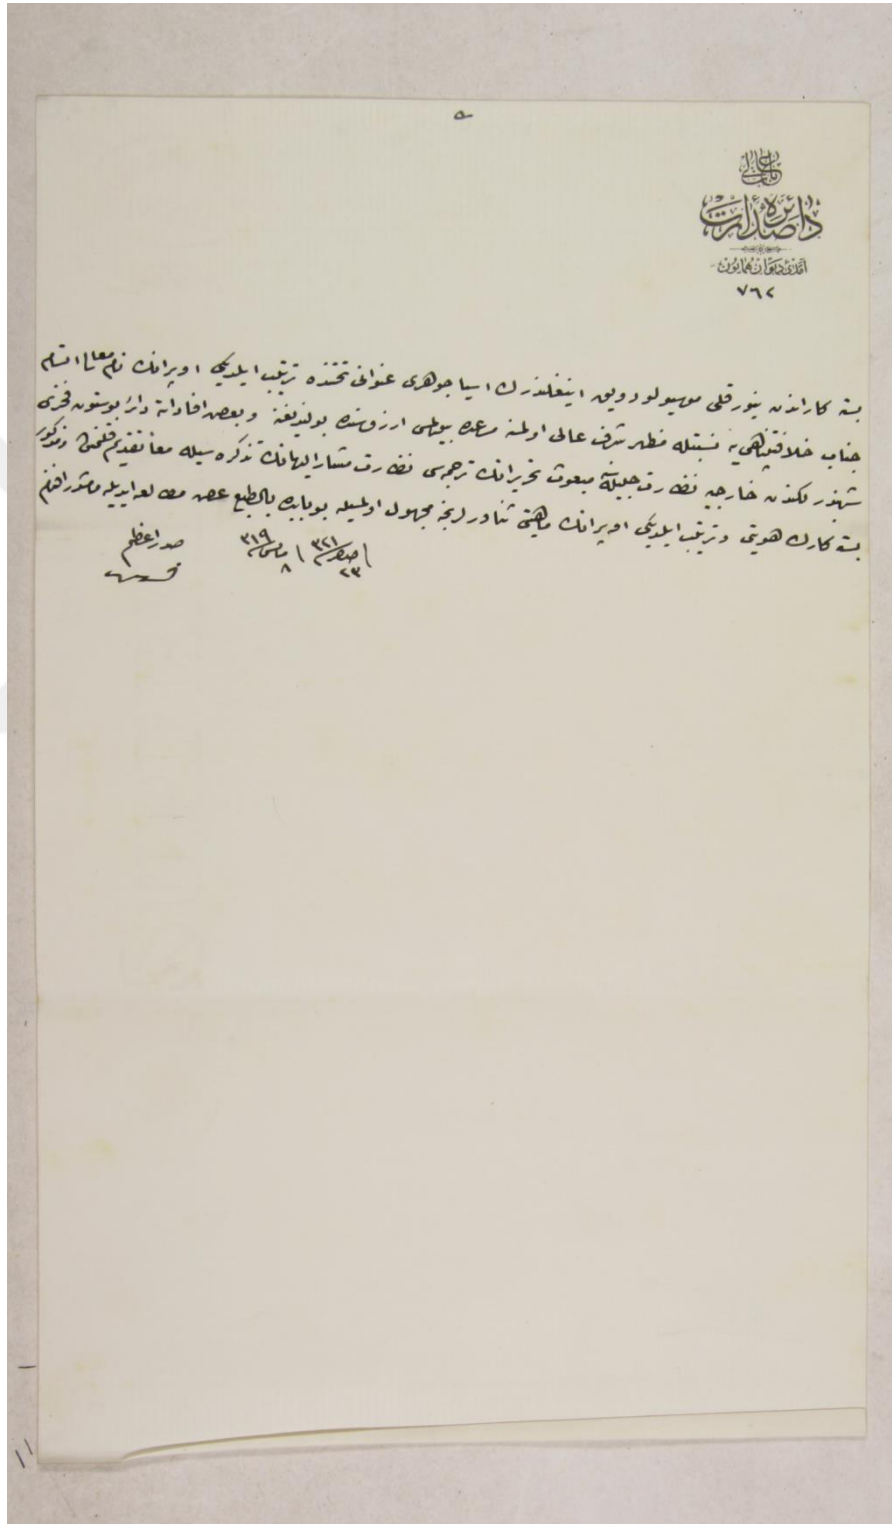 ٥
باب عالی
دائرۀ صدارت
آمدئ دیوان همایون
٧٦٢
بسته كاراندن نیورقلی موسیو لودویق اینغلندرك اسیا جوهری عنوانی تحتنده ترتیب ایلدیكی اوپرانك نام معالی اتسام
جناب خلافتپناهی یه نسبتله مظهر شرف عالی اولمنه مساعده بیورلمسی ارزوسنده بولندیغنه و بعض افاداته دائر بوستون فخری
شهبندرلكندن خارجیه نظارت جلیله سنه مبعوث تحریراتك ترجمه سی نظارت مشار الیهانك تذكره سیله معا تقدیم قلنمش و مذكور
بسته كارك هویتی و ترتیب ایلدیكی اوپرانك ماهیتی ثناورلرنجه مجهول اولمسیله بوبابده بالطبع عرض مطالعه ایدیله مامشدر افندم
فی ٢٣ صفر ٣٢١ فی ٨ مایس ٣١٩
صدر اعظم